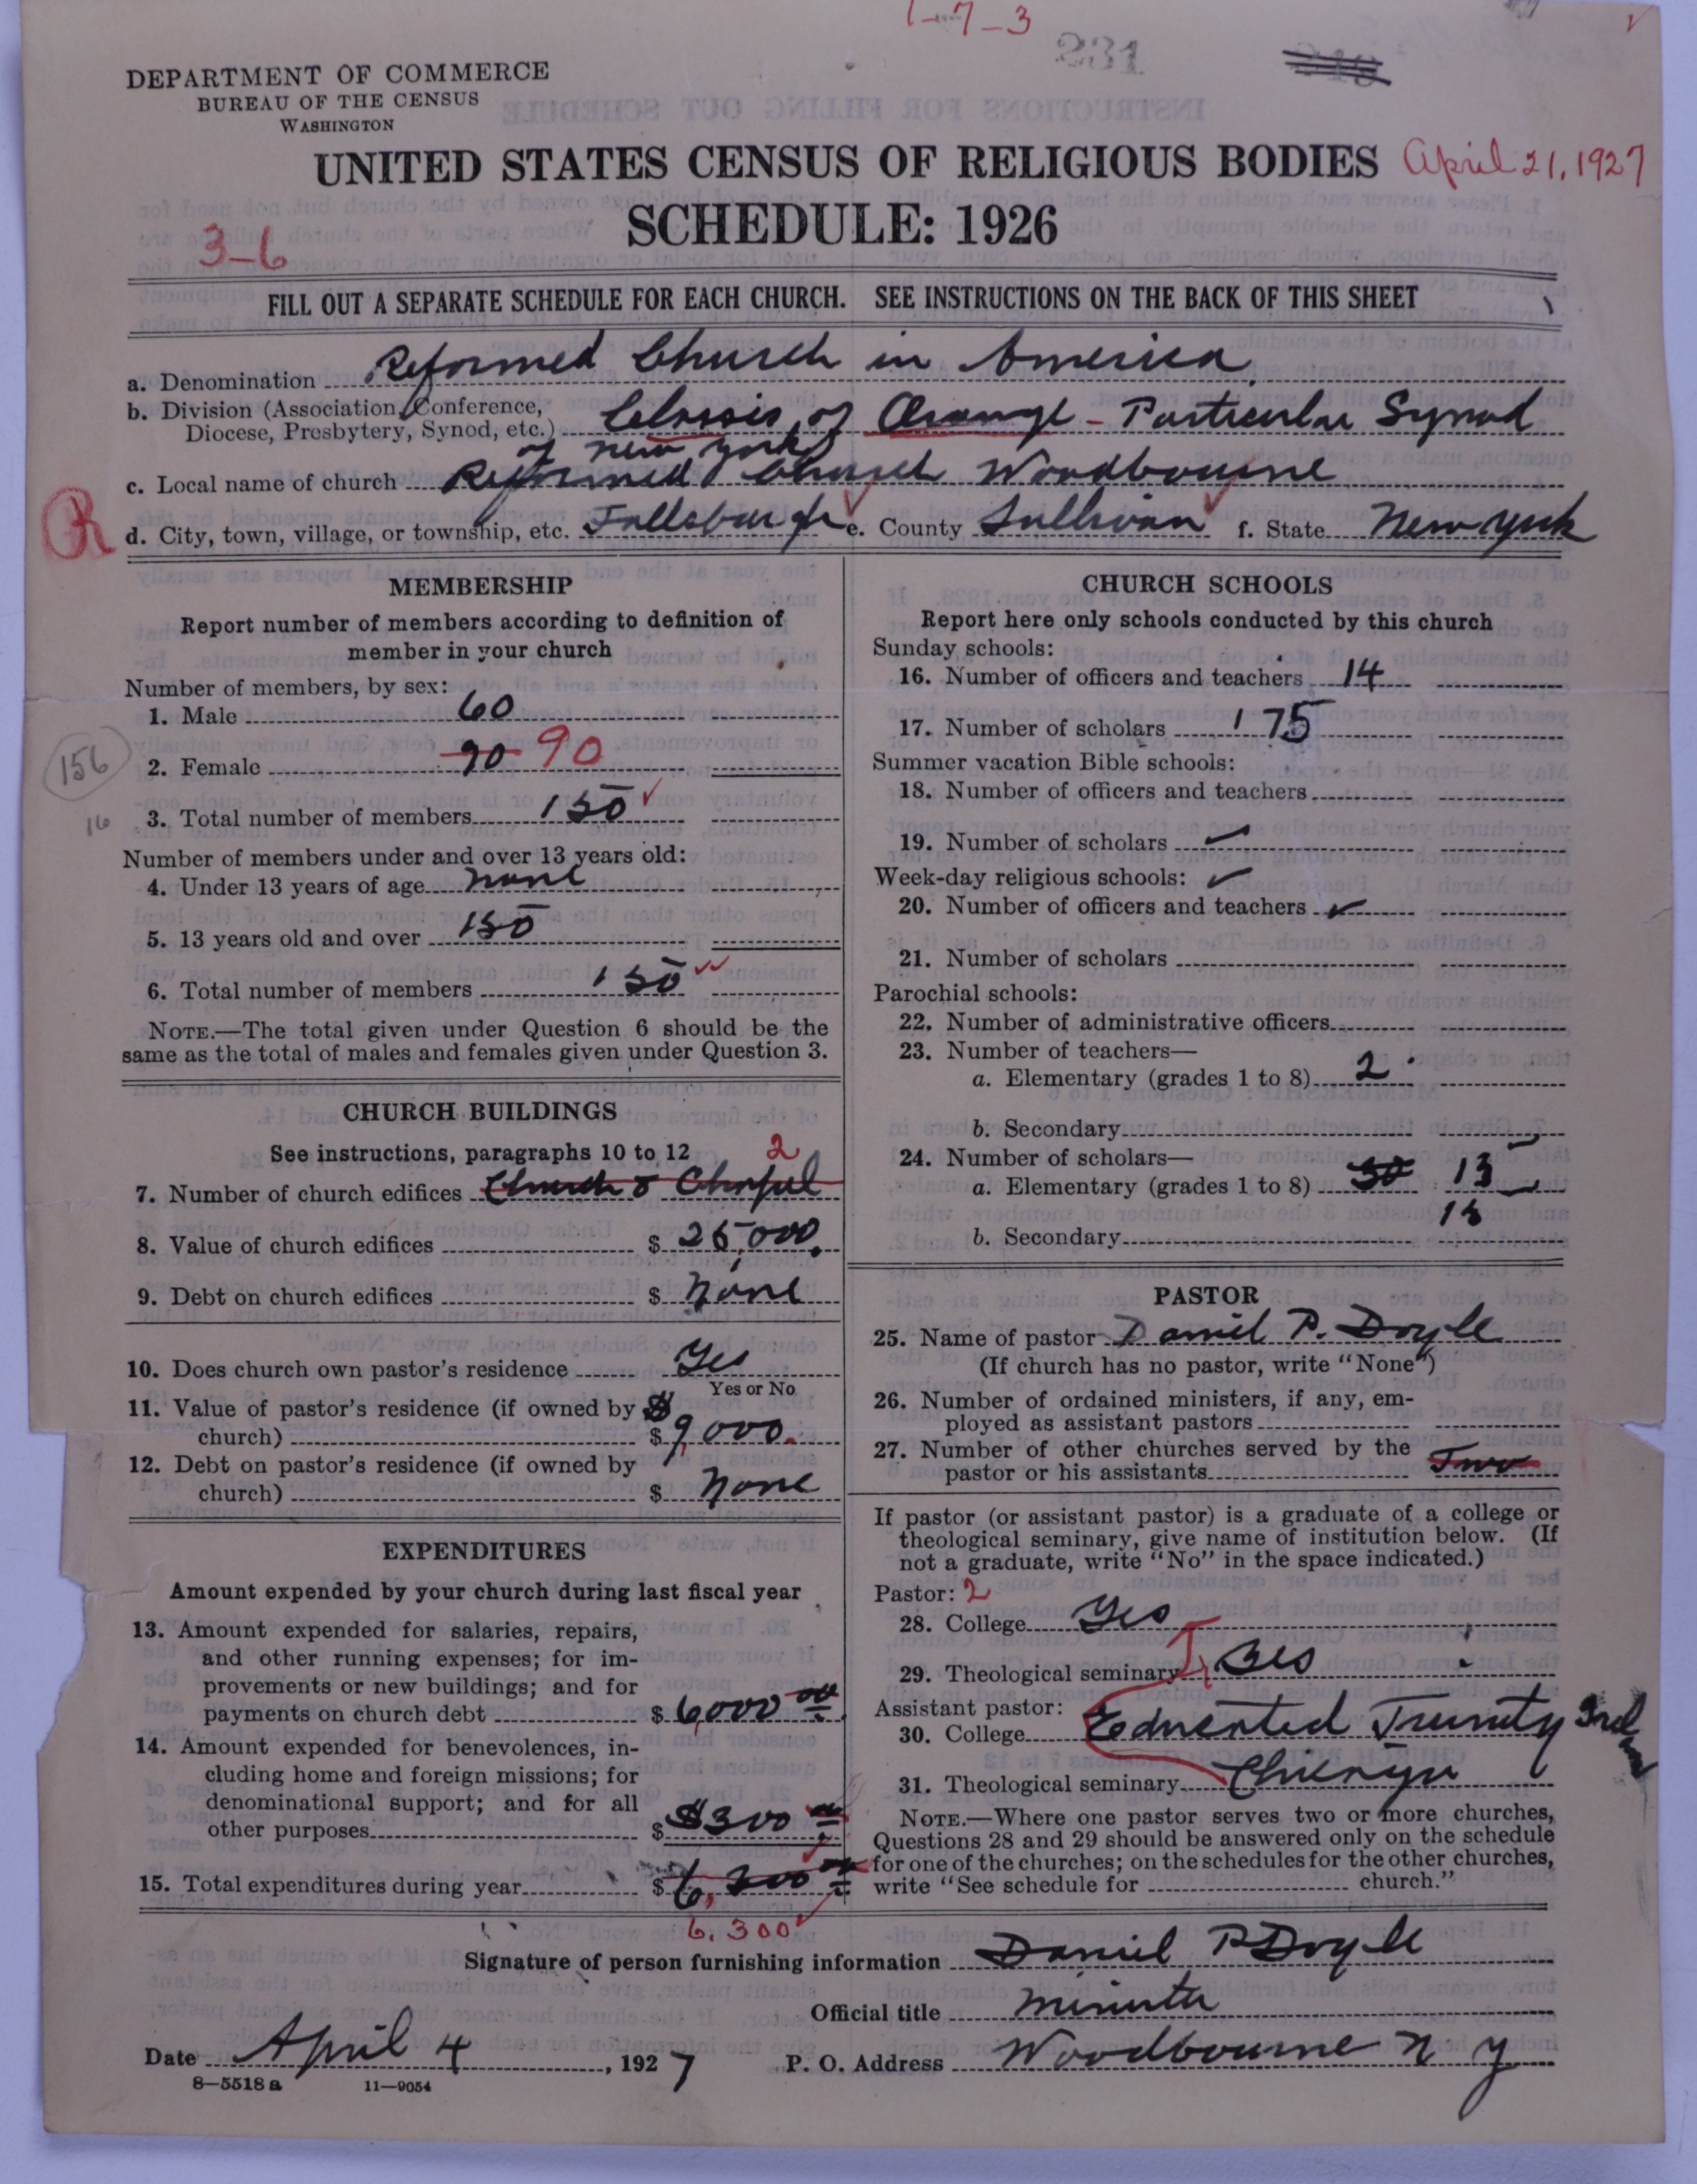 1-7-3
231
DEPARTMENT OF COMMERCE
BUREAU OF THE CENSUS
WASHINGTON
UNITED STATES CENSUS OF RELIGIOUS BODIES April 21, 1927
SCHEDULE: 1926
3-6
FILL OUT A SEPARATE SCHEDULE FOR EACH CHURCH. SEE INSTRUCTIONS ON THE BACK OF THIS SHEET
a. Denomination Reformed Church in America
b. Division (Association, Conference, Diocese, Presbytery, Synod, etc.) Classis of Orange - Particular Synod
of New York
c. Local name of church Reformed Church Woodbourne
R
d. City, town, village, or township, etc. Fallsburgh e. County Sullivan f. State New York
MEMBERSHIP
Report number of members according to definition of
member in your church
Number of members, by sex:
1. Male 60
2. Female 90 90
156
3. Total number of members 150
16
Number of members under and over 13 years old:
4. Under 13 years of age none
5. 13 years old and over 150
6. Total number of members 150
NOTE.—The total given under Question 6 should be the
same as the total of males and females given under Question 3.
CHURCH BUILDINGS
See instructions, paragraphs 10 to 12 2
7. Number of church edifices Church & Chapel
8. Value of church edifices $ 25,000.
9. Debt on church edifices $ None
10. Does church own pastor's residence Yes
Yes or No
11. Value of pastor's residence (if owned by $
church) $ 9,000.
12. Debt on pastor's residence (if owned by
church) $ None
EXPENDITURES
Amount expended by your church during last fiscal year
13. Amount expended for salaries, repairs,
and other running expenses; for im-
provements or new buildings; and for
payments on church debt $ 6,000 00
14. Amount expended for benevolences, in-
cluding home and foreign missions; for
denominational support; and for all
other purposes $ $300
15. Total expenditures during year $ 6,300
6,300
CHURCH SCHOOLS
Report here only schools conducted by this church
Sunday schools:
16. Number of officers and teachers 14
17. Number of scholars 175
Summer vacation Bible schools:
18. Number of officers and teachers
19. Number of scholars ✓
Week-day religious schools: ✓
20. Number of officers and teachers ✓
21. Number of scholars
Parochial schools:
22. Number of administrative officers
23. Number of teachers—
a. Elementary (grades 1 to 8) 2
b. Secondary
24. Number of scholars—
a. Elementary (grades 1 to 8) 30 13
b. Secondary
PASTOR
25. Name of pastor Daniel P. Doyle
(If church has no pastor, write "None")
26. Number of ordained ministers, if any, em-
ployed as assistant pastors
27. Number of other churches served by the
pastor or his assistants Two
If pastor (or assistant pastor) is a graduate of a college or
theological seminary, give name of institution below. (If
not a graduate, write "No" in the space indicated.)
Pastor: 2
28. College Yes
29. Theological seminary Yes
Assistant pastor:
30. College Educated Trinity Ireland
31. Theological seminary Chicago
NOTE.—Where one pastor serves two or more churches,
Questions 28 and 29 should be answered only on the schedule
for one of the churches; on the schedules for the other churches,
write "See schedule for church."
Signature of person furnishing information Daniel P Doyle
Official title Minister
Date April 4, 1927 P. O. Address Woodbourne N Y
8—5518 a 11—9054